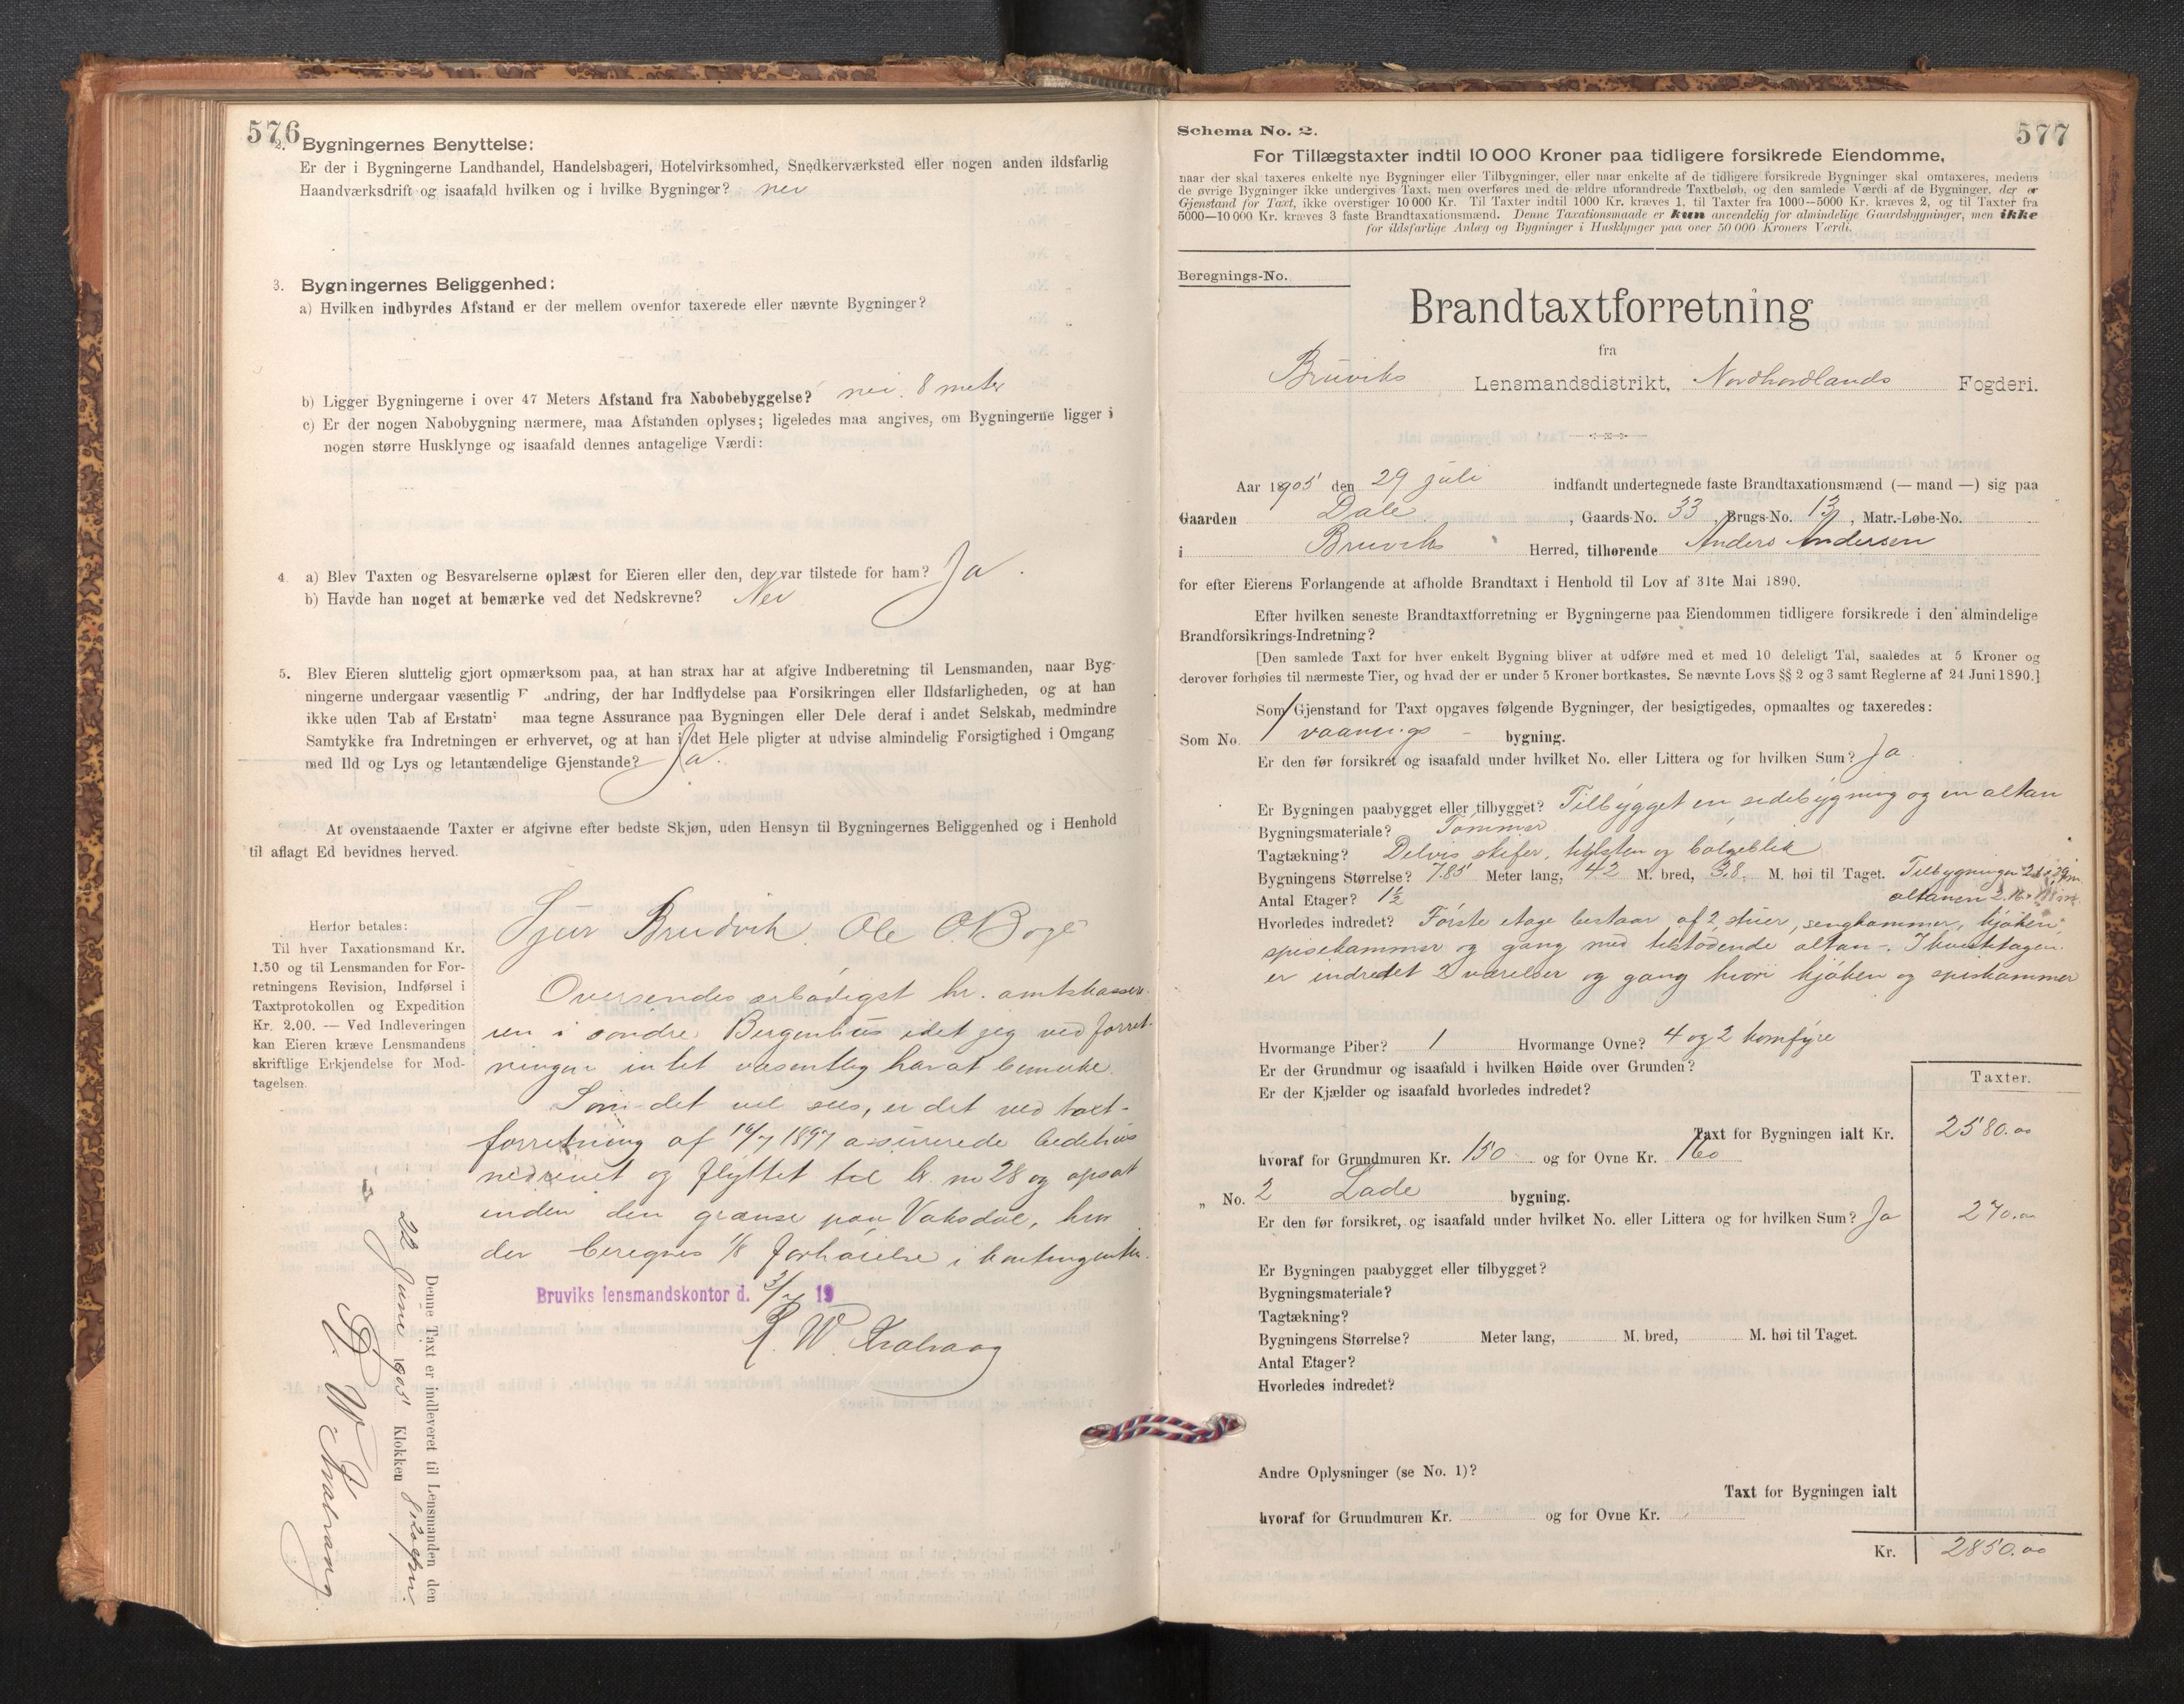 576
2. Bygningernes Benyttelse:
Er der i Bygningerne Landhandel, Handelsbageri, Hotelvirksomhed, Snedkerværksted eller nogen anden ildsfarlig
Haandværksdrift og isaafald hvilken og i hvilke Bygninger? nei
3. Bygningernes Beliggenhed:
a) Hvilken indbyrdes Afstand er der mellem ovenfor taxerede eller nævnte Bygninger?
b) Ligger Bygningerne i over 47 Meters Afstand fra Nabobebyggelse? nei. 8 meter
c) Er der nogen Nabobygning nærmere, maa Afstanden oplyses; ligeledes maa angives, om Bygningerne ligger i
nogen større Husklynge og isaafald dennes antagelige Værdi:
4. a) Blev Taxten og Besvarelserne oplæst for Eieren eller den, der var tilstede for ham? Ja.
b) Havde han noget at bemærke ved det Nedskrevne? Nei
5. Blev Eieren sluttelig gjort opmærksom paa, at han strax har at afgive Indberetning til Lensmanden, naar Byg-
ningerne undergaar væsentlig F andring, der har Indflydelse paa Forsikringen eller Ildsfarligheden, og at han
ikke uden Tab af Erstatn maa tegne Assurance paa Bygningen eller Dele deraf i andet Selskab, medmindre
Samtykke fra Indretningen er erhvervet, og at han i det Hele pligter at udvise almindelig Forsigtighed i Omgang
med Ild og Lys og letantændelige Gjenstande? Ja.
At ovenstaaende Taxter er afgivne efter bedste Skjøn, uden Hensyn til Bygningernes Beliggenhed og i Henhold
til aflagt Ed bevidnes herved.
Herfor betales:
Til hver Taxationsmand Kr.
1.50 og til Lensmanden for For-
retningens Revision, Indførsel i
Taxtprotokollen og Expedition
Kr. 2.00. — Ved Indleveringen
kan Eieren kræve Lensmandens
skriftlige Erkjendelse for Mod-
tagelsen.
Sjur Brudvik. Ole O. Boge
Oversendes ærbødigst hr. amtskasser-
ren i søndre Bergenhus idet jeg ved forret-
ningen intet væsentlig har at bemerke.
Som det vil sees, er det ved taxt-
forretning af 16/7 1897 assurerede bedehus
nedrevet og flyttet til br. no 28 og opsat
inden den grænse paa Vaksdal, hvor
der beregnes 1/8 forhøielse i kontingenten.
Bruviks lensmandskontor d. 3/7 19
Denne Taxt er indleveret til Lensmanden den
22 June 1905 Klokken 8
577
Schema No. 2.
For Tillægstaxter indtil 10 000 Kroner paa tidligere forsikrede Eiendomme,
naar der skal taxeres enkelte nye Bygninger eller Tilbygninger, eller naar enkelte af de tidligere forsikrede Bygninger skal omtaxeres, medens
de øvrige Bygninger ikke undergives Taxt, men overføres med de ældre uforandrede Taxtbeløb, og den samlede Værdi af de Bygninger, der er
Gjenstand for Taxt, ikke overstiger 10 000 Kr. Til Taxter indtil 1000 Kr. kræves 1, til Taxter fra 1000—5000 Kr. kræves 2, og til Taxter fra
5000—10 000 Kr. kræves 3 faste Brandtaxationsmænd. Denne Taxationsmaade er kun anvendelig for almindelige Gaardsbygninger, men ikke
for ildsfarlige Anlæg og Bygninger i Husklynger paa over 50 000 Kroners Værdi.
Beregnings-No.
Brandtaxtforretning
fra
Bruviks Lensmandsdistrikt, Nordhordlands Fogderi.
Aar 1905 den 29 juli indfandt undertegnede faste Brandtaxationsmænd (— mand —) sig paa
Gaarden Dale, Gaards-No. 33, Brugs-No. 13, Matr.-Løbe-No.
i Bruviks Herred, tilhørende Anders Andersen
for efter Eierens Forlangende at afholde Brandtaxt i Henhold til Lov af 31te Mai 1890.
Efter hvilken seneste Brandtaxtforretning er Bygningerne paa Eiendommen tidligere forsikrede i den almindelige
Brandforsikrings-Indretning?
[Den samlede Taxt for hver enkelt Bygning bliver at udføre med et med 10 deleligt Tal, saaledes at 5 Kroner og
derover forhøies til nærmeste Tier, og hvad der er under 5 Kroner bortkastes. Se nævnte Lovs §§ 2 og 3 samt Reglerne af 24 Juni 1890.]
Som Gjenstand for Taxt opgaves følgende Bygninger, der besigtigedes, opmaaltes og taxeredes:
Som No. 1 vaanings - bygning.
Er den før forsikret og isaafald under hvilket No. eller Littera og for hvilken Sum? Ja
Er Bygningen paabygget eller tilbygget? Tilbygget en sidebygning og en altan
Bygningsmateriale? Tømmer
Tagtækning? Delvis skifer, teglsten og bølgeblik
Bygningens Størrelse? 7.85 Meter lang, 4.2 M. bred, 3.8. M. høi til Taget. Tilbygningen
Antal Etager? 1½ altanen
Hvorledes indredet? Første etage bestaar af 2 stuer, sengkammer, kjøken,
spisekammer og gang med tilstødende altan. I kvistetagen
er indredet 2 værelser og gang hvori kjøken og spiskammer
Hvormange Piber? 1 Hvormange Ovne? 4 og 2 komfyre
Er der Grundmur og isaafald i hvilken Høide over Grunden?
Er der Kjælder og isaafald hvorledes indredet?
Taxter.
Taxt for Bygningen ialt Kr. 2580.00
hvoraf for Grundmuren Kr. 150 og for Ovne Kr. 160
„ No. 2 Lade bygning.
Er den før forsikret, og isaafald under hvilket No. eller Littera og for hvilken Sum? Ja 270.00
Er Bygningen paabygget eller tilbygget?
Bygningsmateriale?
Tagtækning?
Bygningens Størrelse? Meter lang, M. bred, M. høi til Taget.
Antal Etager?
Hvorledes indredet?
Andre Oplysninger (se No. 1)?
Taxt for Bygningen ialt
hvoraf for Grundmuren Kr. og for Ovne Kr.
Kr. 2850.00